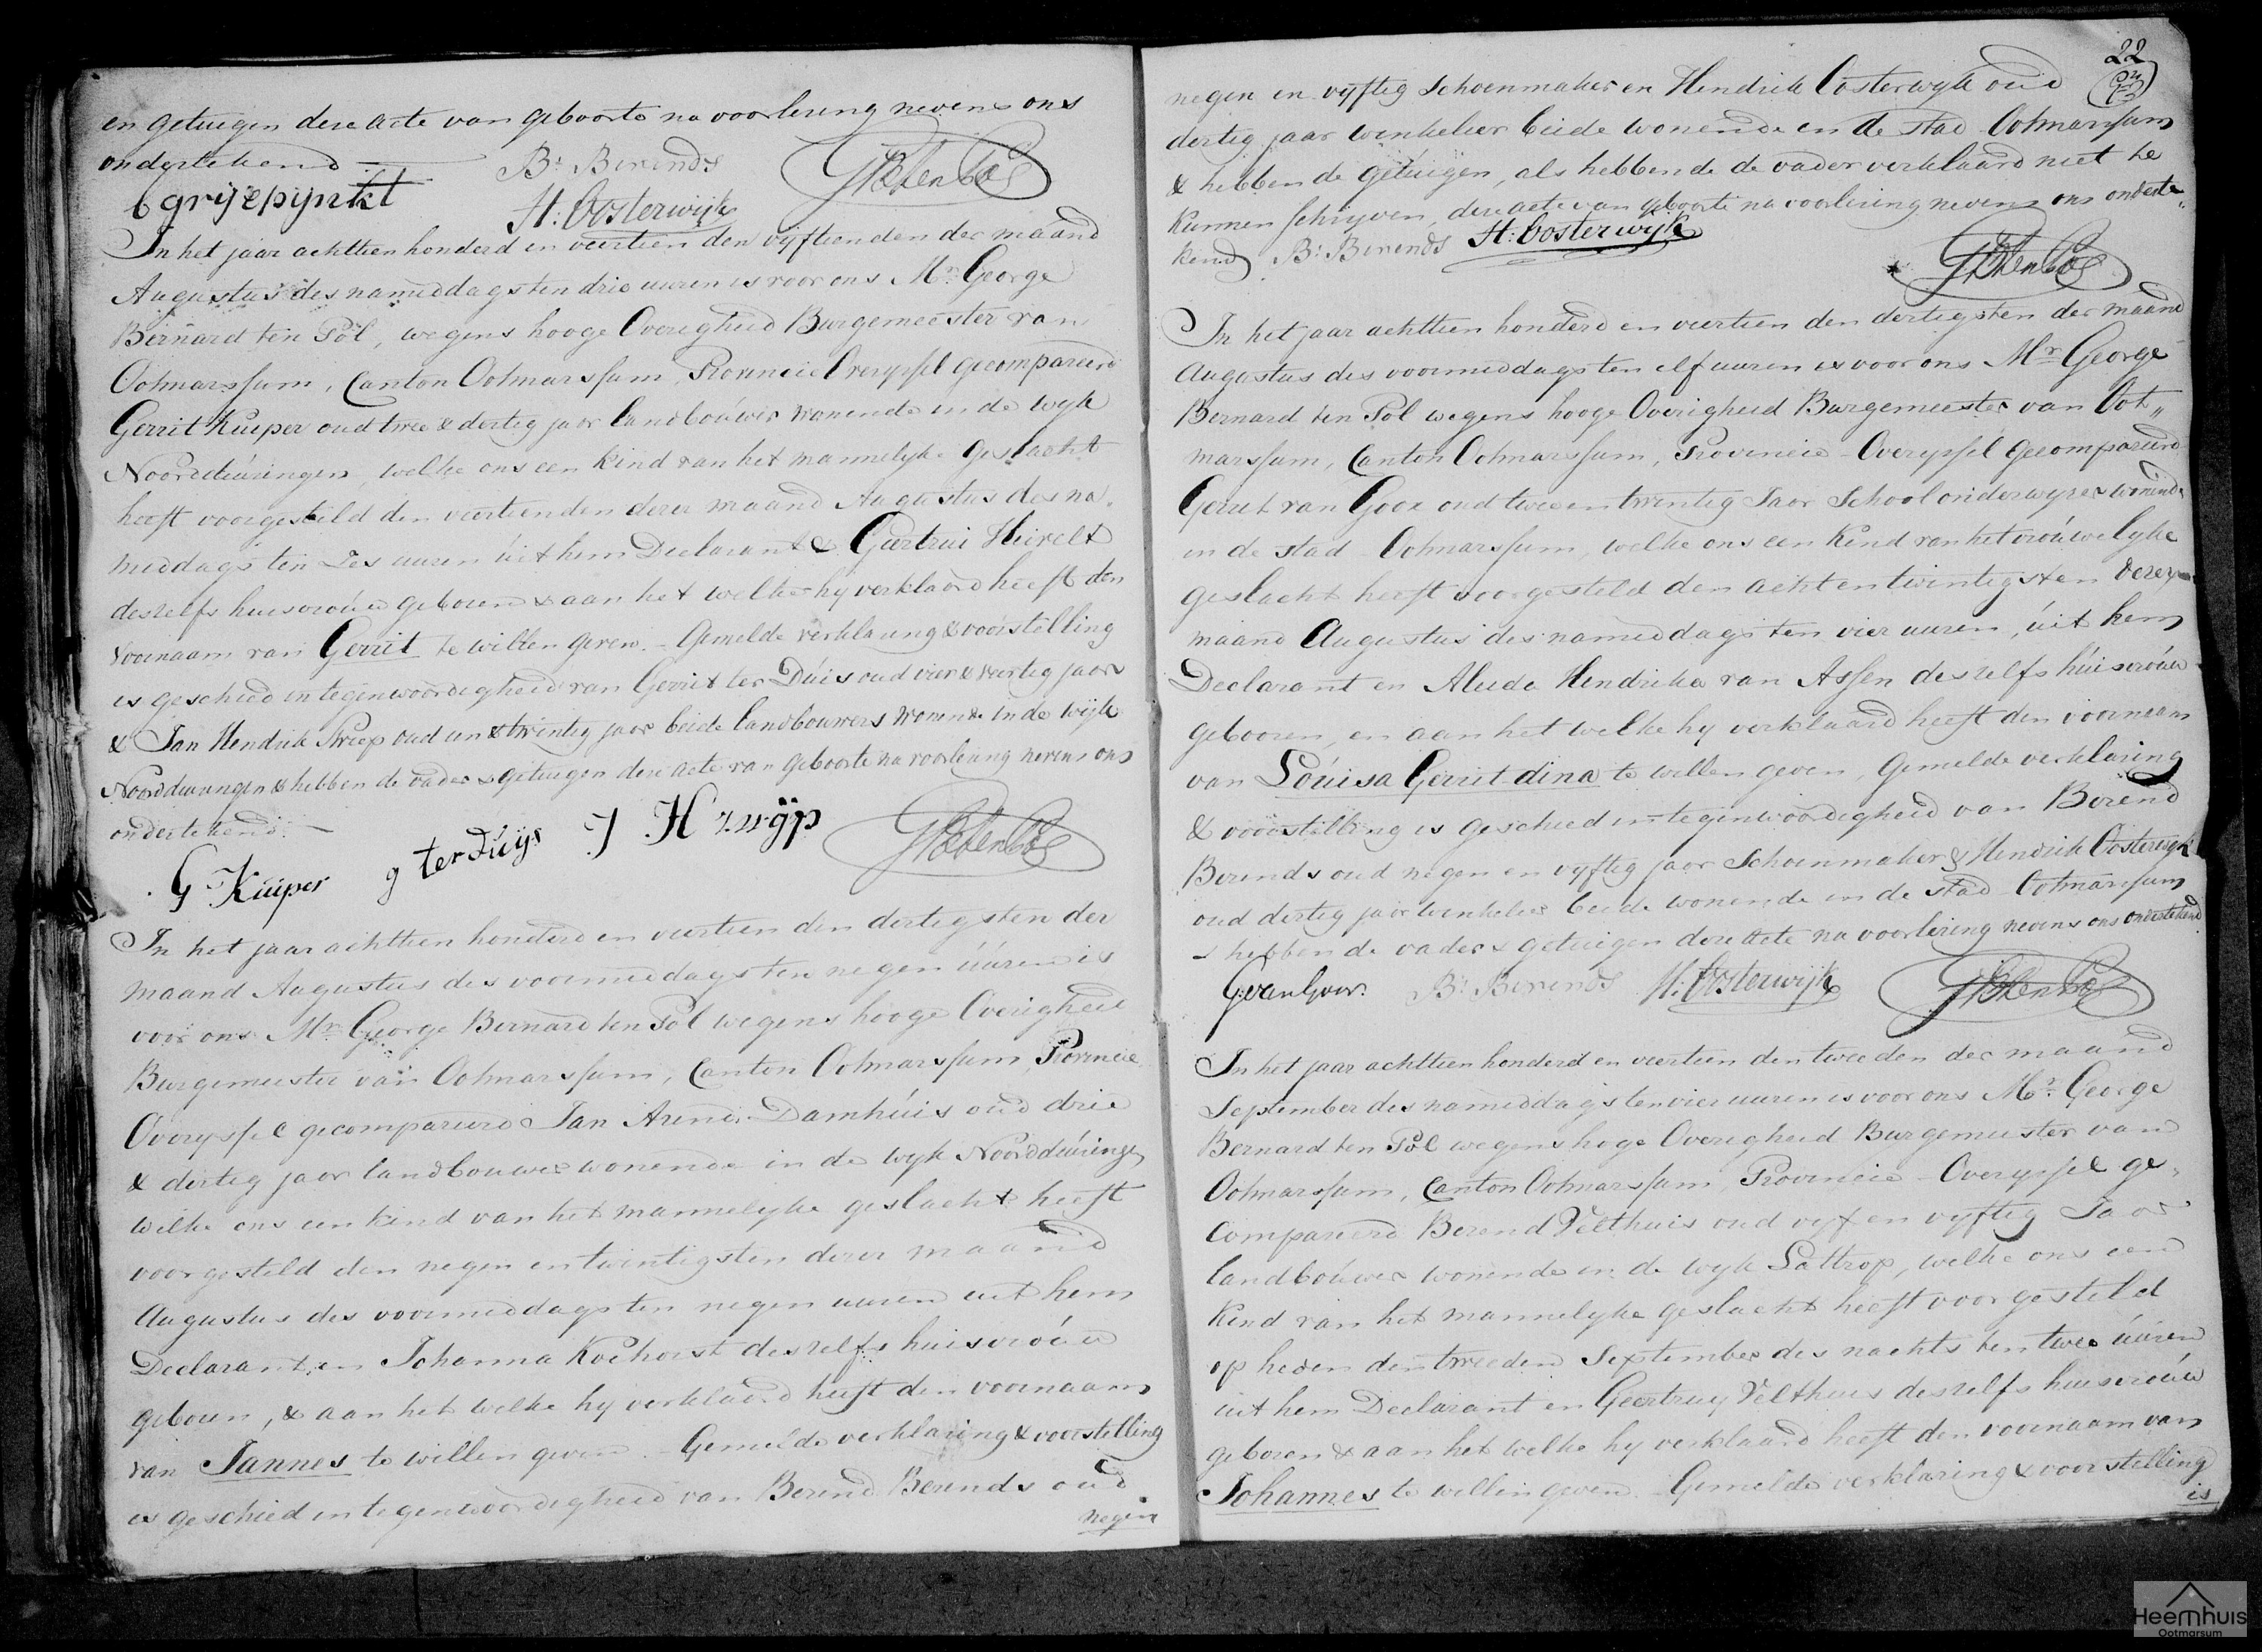 en getuigen dese acte van geboorte na voorlesing nevens ons
ondertekend.
B: Berends
b grijzepijnkt
H: Oosterwijk
In het jaar achttien honderd en veertien den vijftienden der maand
Augustus des namiddags ten drie uuren is voor ons Mr. George
Bernard ten Pol, wegens hooge Overigheid Burgemeester van
Ootmarssum, Canton Ootmarssum, Provincie Overyssel gecompareerd
Gerrit Kuiper oud twee & dertig jaar landbouwer wonende in de wyk
Noordduringen, welke ons een kind van het mannelyke geslacht
heeft voorgesteld den veertienden dezer maand Augustus des na-
middags ten zes uuren uit hem Declarant &
deszelfs huisvrouw geboren & aan het welke hy verklaard heeft den
voornaam van Gerrit te willen geven. - Gemelde verklaring & voorstelling
is geschied in tegenwoordigheid van Gerrit ter Duis oud vier & veertig jaar
& Jan Hendrik oud een & twintig jaar beide landbouwers wonende in de wyk
Noordduringen & hebben de vader & getuigen dese acte van geboorte na voorlesing nevens ons
ondertekend. -
G Kuiper g ter Duijs J H zwijp
In het jaar achttien honderd en veertien den dertigsten der
maand Augustus des voormiddags ten negen uuren is
voor ons Mr. George Bernard ten Pol wegens hooge Overigheid
Burgemeester van Ootmarssum, Canton Ootmarssum, Provincie
Overyssel gecompareerd Jan Arend Damhuis oud drie
& dertig jaar landbouwer wonende in de wyk Noordduringe
welke ons een kind van het mannelyke geslacht heeft
voorgesteld den negen en twintigsten dezer maand
Augustus des voormiddags ten negen uuren uit hem
Declarant en Johanna Koehorst deszelfs huisvrouw
geboren, & aan het welke hy verklaard heeft den voornaam
van Jannes te willen geven. - Gemelde verklaring & voorstelling
is geschied in tegenwoordigheid van Berend Berends oud
negen
22
negen en vyftig Schoenmaker en Hendrik Oosterwyk oud
dertig jaar winkelier beide wonende in de stad Ootmarssum
& hebben de getuigen, als hebbende de vader verklaard niet te
kunnen schryven, dese acte van geboorte na voorlesing nevens ons onderte-
kend. B: Berends H: Oosterwijk
In het jaar achttien honderd en veertien den dertigsten der maand
Augustus des voormiddags ten elf uuren is voor ons Mr. George
Bernard ten Pol wegens hooge Overigheid Burgemeester van Oot„
marssum, Canton Ootmarssum, Provincie Overyssel gecompareerd
Gerrit van Goor oud twee en twintig Jaar Schoolonderwyzer wonende
in de stad Ootmarssum, welke ons een Kind van het vrouwelyke
geslacht heeft voorgesteld den acht en twintigsten dezer
maand Augustus des namiddags ten vier uuren, uit hem
Declarant en Aleida Hendrika van Assen deszelfs huisvrouw
gebooren, en aan het welke hy verklaard heeft den voornaam
van Louisa Gerritdina te willen geven, Gemelde verklaring
& voorstelling is geschied in tegenwoordigheid van Berend
Berends oud negen en vyftig jaar Schoenmaker & Hendrik Oosterwyk
oud dertig jaar winkelier beide wonende in de stad Ootmarssum
& hebben de vader & getuigen dese acte na voorlesing nevens ons ondertekend.
G: van Goor. B: Berends H: Oosterwijk
In het jaar achttien honderd en veertien den tweeden der maand
September des namiddags ten vier uuren is voor ons Mr. George
Bernard ten Pol wegens hoge Overigheid Burgemeester van
Ootmarssum, Canton Ootmarssum, Provincie Overyssel ge-
compareerd Berend Velthuis oud vyf en vyftig Jaar
landbouwer wonende in de wyk Lattrop, welke ons een
Kind van het mannelyke geslacht heeft voorgesteld
op heden den tweeden September des nachts ten twee uuren
uit hem Declarant en Geertruy Velthuis deszelfs huisvrouw
geboren & aan het welke hy verklaard heeft den voornaam van
Johannes te willen geven. Gemelde verklaring & voorstelling
is
Heemhuis
Ootmarsum